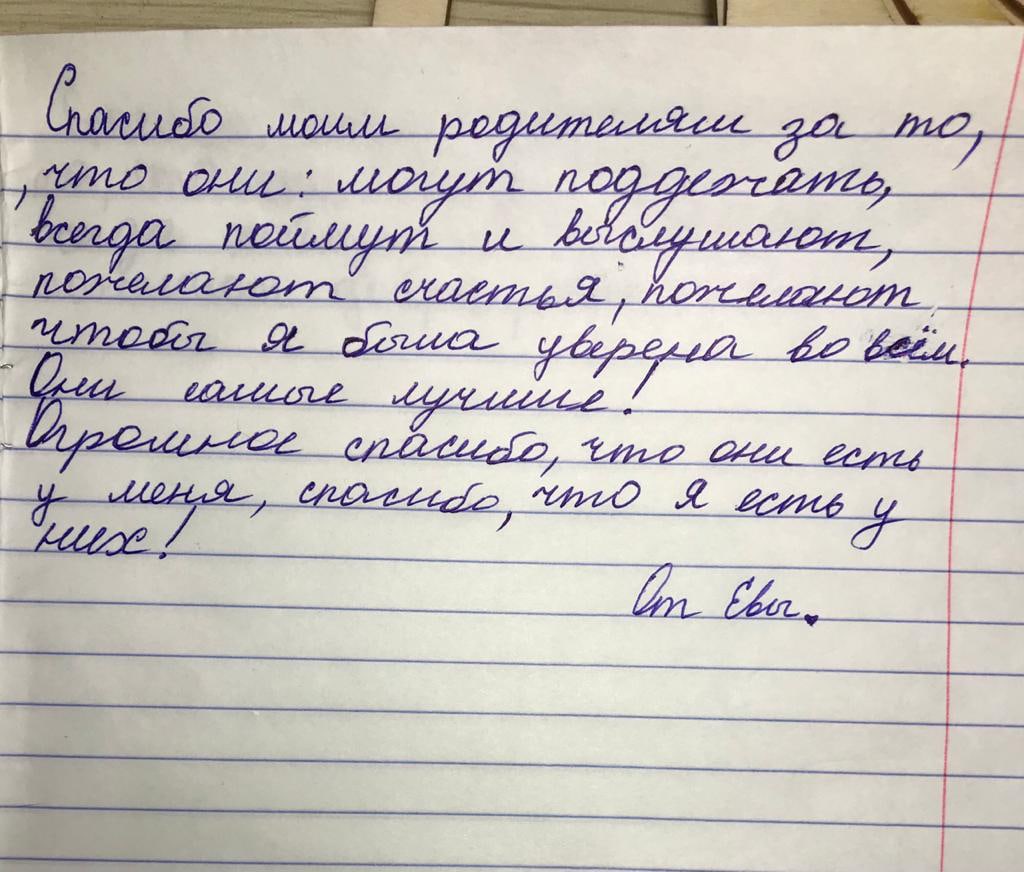 Спасибо моим родителям за то,
, что они: могут поддежать,
всегда поймут и выслушают,
пожелают счастья, пожелают
чтобы я была уверена во всём.
Они самые лучшие!
Огромное спасибо, что они есть
у меня, спасибо, что я есть у
них!
От Евы.